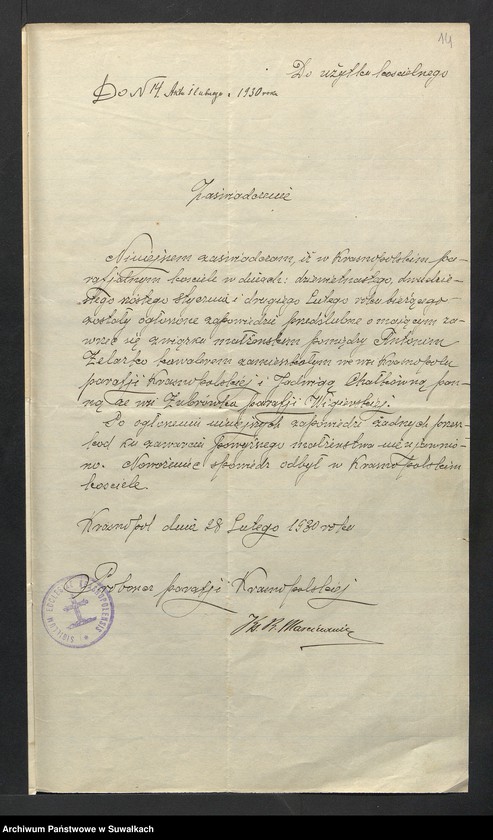 14
Do użytku kościelnego
Do N 14 Aktu ślubnego 1930 roku
Zaświadczenie
Niniejszem zaświadczam, iż w Krasnopolskim pa-
rafjalnym kościele w dniach: dziewiętnastego, dwudzie-
stego szóstego stycznia i drugiego Lutego roku bieżącego
zostały ogłoszone zapowiedzi przedślubne o mającym za-
wrzeć się związku małżeńskim pomiędzy Antonim
Żelazko kawalerem zamieszkałym we wsi Krasnopolu
parafji Krasnopolskiej i Jadwigą panną
ze wsi Żubrówka parafji Wigierskiej.
Po ogłoszeniu niniejszych zapowiedzi żadnych przesz-
kod ku zawarciu powyższego małżeństwa nie ujawnio-
no. Nowożeniec spowiedź odbył w Krasnopolskim
kościele.
Krasnopol dnia 28 Lutego 1930 roku
Proboszcz parafji Krasnopolskiej
Ks. K. Marcinowicz
SIGILLUM ECCLESIAE KRASNOPOLENSIS
Archiwum Państwowe w Suwałkach